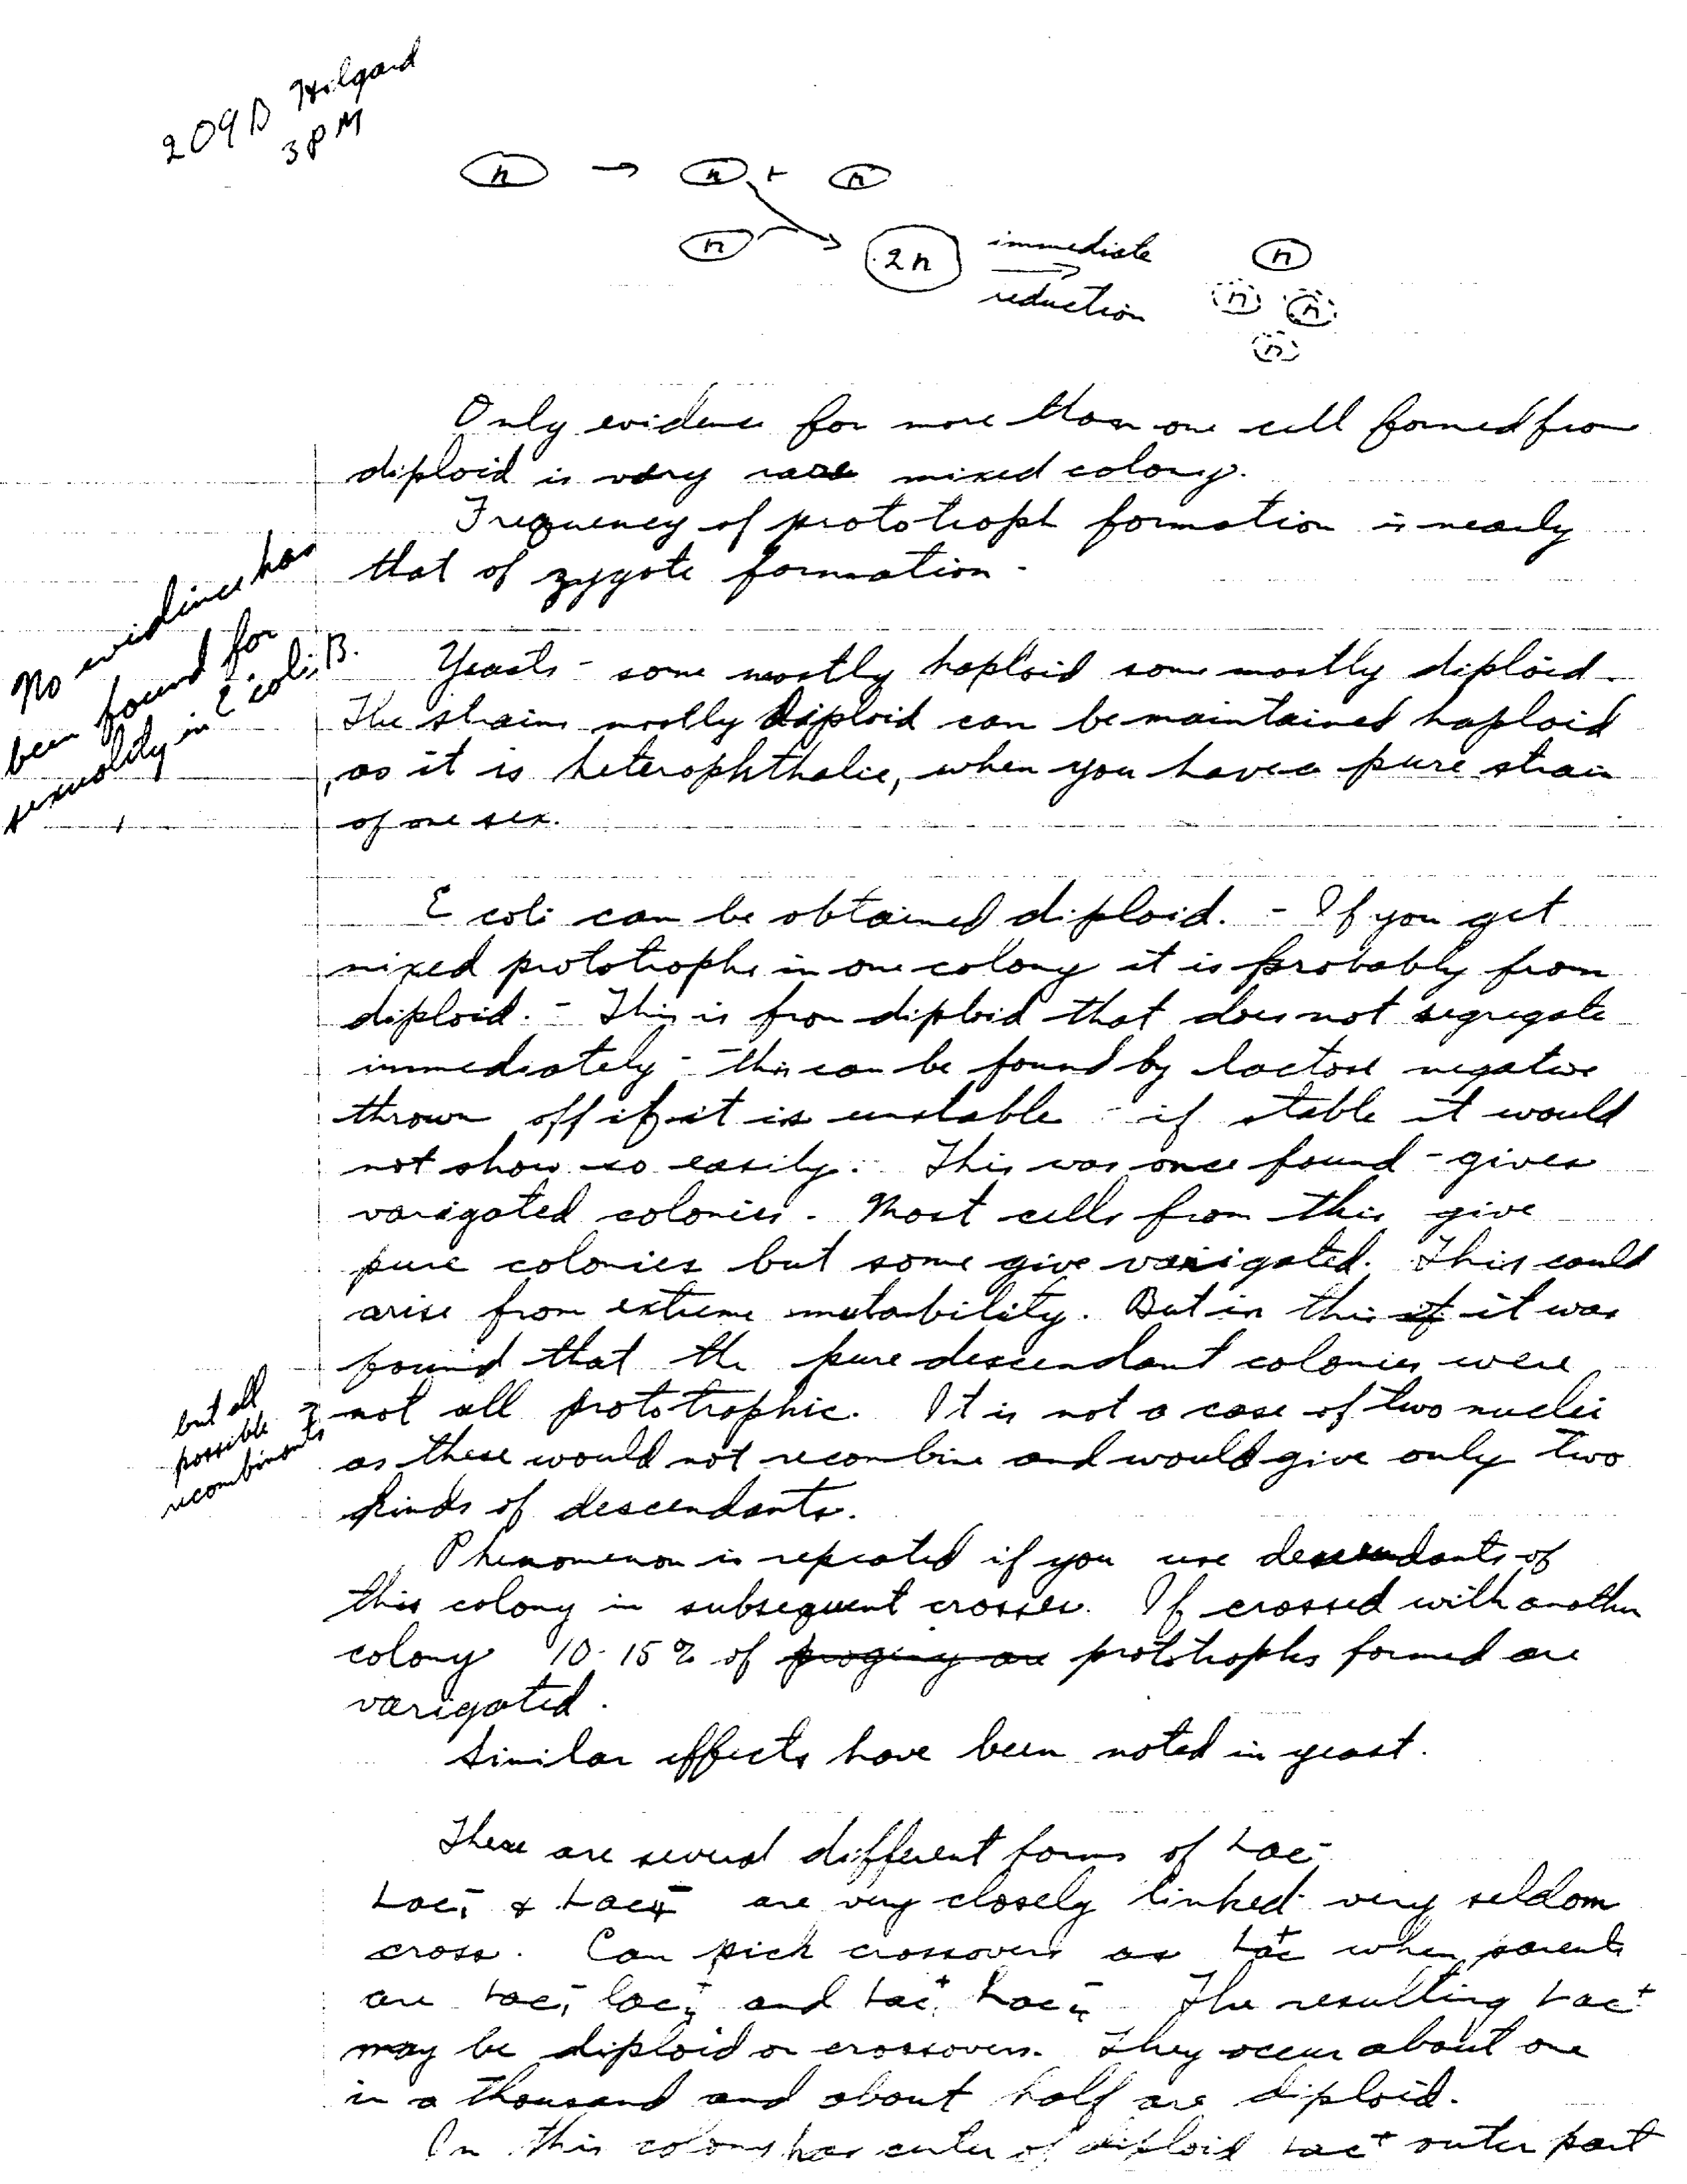 209B Hilgard
3 PM
n → n + n
n 2n immediate reduction n
n n
n
Only evidence for more than one cell formed from
diploid is very rare mixed colony.
Frequency of prototroph formation is nearly
that of zygote formation.
No evidence has
been found for
sexuality in E coli B.
Yeasts - some mostly haploid some mostly diploid.
The strains mostly diploid can be maintained haploid
, as it is heterophthalic, when you have a pure strain
of one sex.
E coli can be obtained diploid. - If you get
mixed prototrophs in one colony it is probably from
diploid. - This is from diploid that does not segregate
immediately - this can be found by lactose negative
thrown off if it is unstable - if stable it would
not show so easily. This was once found - gives
varigated colonies. Most cells from this give
pure colonies but some give varigated. This could
arise from extreme mutability. But in this it was
found that the pure descendant colonies were
not all prototrophic. It is not a case of two nuclei
but all
possible
recombinants
as these would not recombine and would give only two
kinds of descendants.
Phenomenon is repeated if you use descendants of
this colony in subsequent crosses. If crossed with another
colony 10-15% of progeny are prototrophs formed are
varigated.
Similar effects have been noted in yeast.
There are several different forms of Lac-
Lac1- & Lac4- are very closely linked very seldom
cross. Can pick crossovers as Lac+ when parents
are Lac1- Lac4+ and Lac1+ Lac4- The resulting Lac+
may be diploid or crossovers. They occur about one
in a thousand and about half are diploid.
In this colony has center of diploid Lac+ outer part